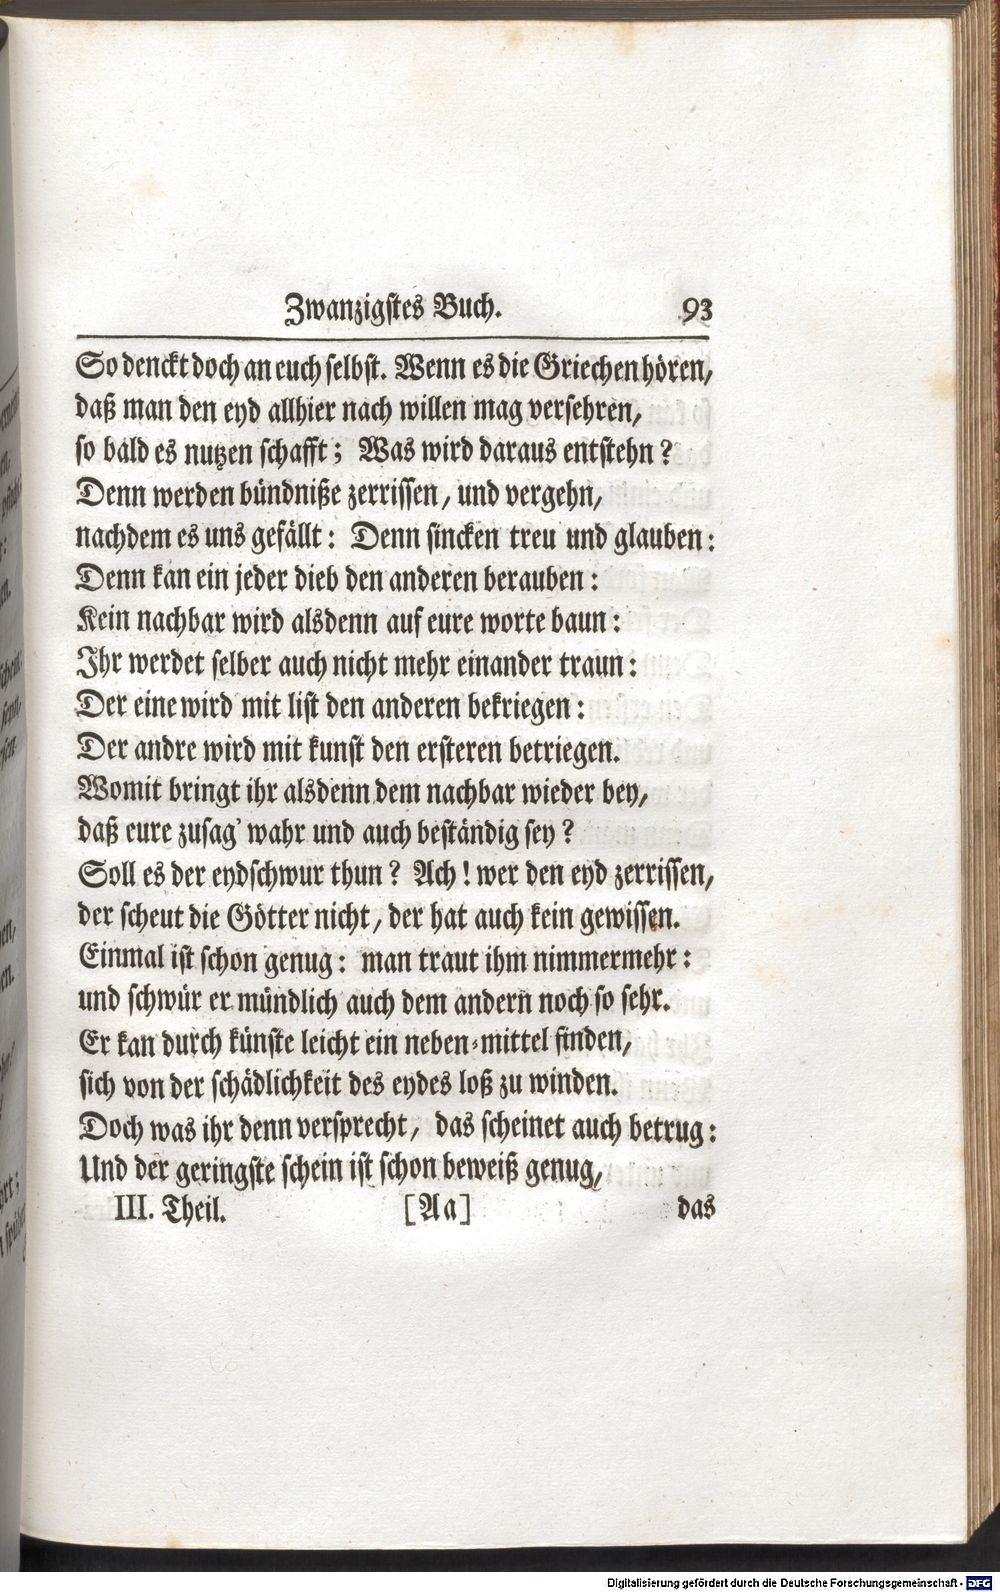 Zwanzigstes Buch. 93
So denckt doch an euch selbst. Wenn es die Griechen hören,
daß man den eyd allhier nach willen mag versehren,
so bald es nutzen schafft; Was wird daraus entstehn?
Denn werden bündniße zerrissen, und vergehn,
nachdem es uns gefällt: Denn sincken treu und glauben:
Denn kan ein jeder dieb den anderen berauben:
Kein nachbar wird alsdenn auf eure worte baun:
Ihr werdet selber auch nicht mehr einander traun:
Der eine wird mit list den anderen bekriegen:
Der andre wird mit kunst den ersteren betriegen.
Womit bringt ihr alsdenn dem nachbar wieder bey,
daß eure zusag' wahr und auch beständig sey?
Soll es der eydschwur thun? Ach! wer den eyd zerrissen,
der scheut die Götter nicht, der hat auch kein gewissen.
Einmal ist schon genug: man traut ihm nimmermehr:
und schwür er mündlich auch dem andern noch so sehr.
Er kan durch künste leicht ein neben-mittel finden,
sich von der schädlichkeit des eydes loß zu winden.
Doch was ihr denn versprecht, das scheinet auch betrug:
Und der geringste schein ist schon beweiß genug,
III. Theil. [Aa] das
Digitalisierung gefördert durch die Deutsche Forschungsgemeinschaft - DFG